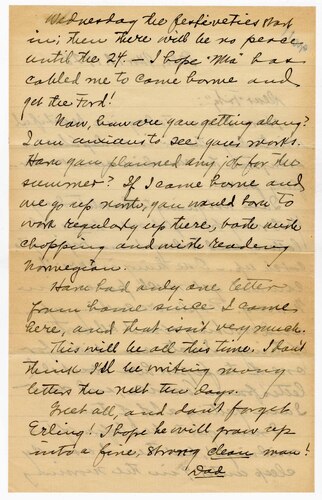 Wednesday the festiveties start
in; then there will be no peace
until the 24. — I hope "Ma" has
cabled me to come home and
get the Ford!
Now, how are you getting along?
I am anxious to see your marks.
Have you planned any job for the
summer? If I came home and
we go up north, you would have to
work regularly up there, both with
chopping and with reading
Norwegian.
Have had only one letter
from home since I came
here, and that isn't very much.
This will be all this time. I don't
think I'll be writing many
letters the next ten days.
Greet all, and don't forget
Erling! I hope he will grow up
into a fine, strong clean man!
Dad